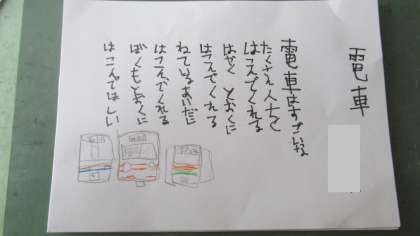 電車
電車はすごいな
たくさん人をと
はこんでくれる
はやく とおくに
はこんでくれる
ねているあいだに
はこんでくれる
ぼくもとおくに
はこんでほしい